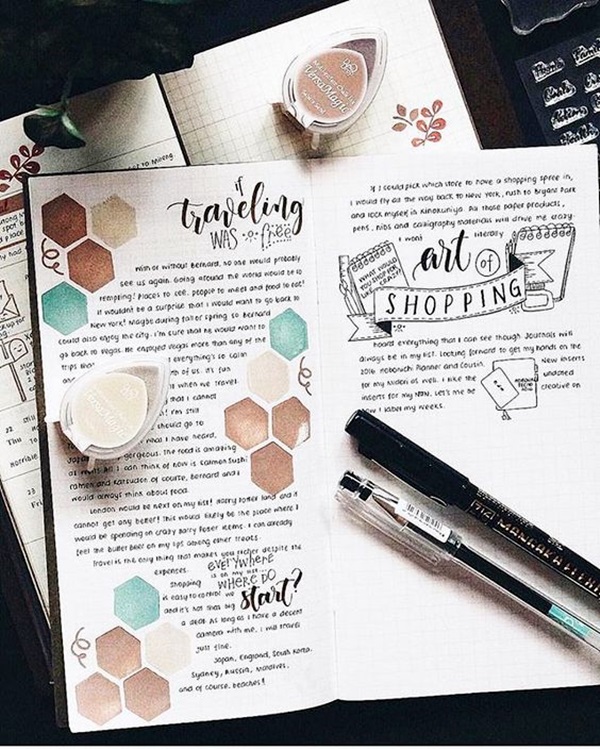 if
traveling
WAS free
With or without Bernard, no one would probably
see us again. Going around the world would be so
tempting! Places to see, people to meet and food to eat!
It wouldn't be a surprise that I would want to go back to
New York! Maybe during fall or spring so Bernard
could also enjoy the city. I'm sure that he would want to
go back to Vegas. He enjoyed Vegas more than any of the
trips
everything's so calm
of us. It's fun
when we travel.
that I cannot
I'm still
should go to
what I have heard,
Japan gorgeous. The food is amazing
as most All I can think of now is Salmon Sushi
ramen and Katsudon of course, Bernard and I
would always think about food.
London would be next on my list! Harry Potter land and it
cannot get any better! This would likely be the place where I
would be spending on crazy Harry Potter items. I can already
feel the butter beer on my lips among other treats.
Travel is the only thing that makes you richer despite the
expenses.
everywhere
is on my list...
Shopping
WHERE DO
is easy to control
start?
and it's not that big
a deal. As long as I have a decent
camera with me, I will travel
just fine.
Japan, England, South Korea,
Sydney, Russia, Maldives,
and of course, beaches!
If I could pick which store to have a shopping spree in,
I would fly all the way back to New York, rush to Bryant Park
and lock myself in Kinokuniya. All those paper products,
pens, nibs and calligraphy materials will drive me crazy.
I want literally
WHAT WOULD
YOU SHOP FOR
LIKE CRAZY?
art of
SHOPPING
hoard everything that I can see though. Journals will
always be in my list. Looking forward to get my hands on the
2016 Hobonichi Planner and Cousin. New inserts
for my Midori as well. I like the undated
inserts for my MTN. Let's me be creative on
how I label my weeks.
VersaMagic